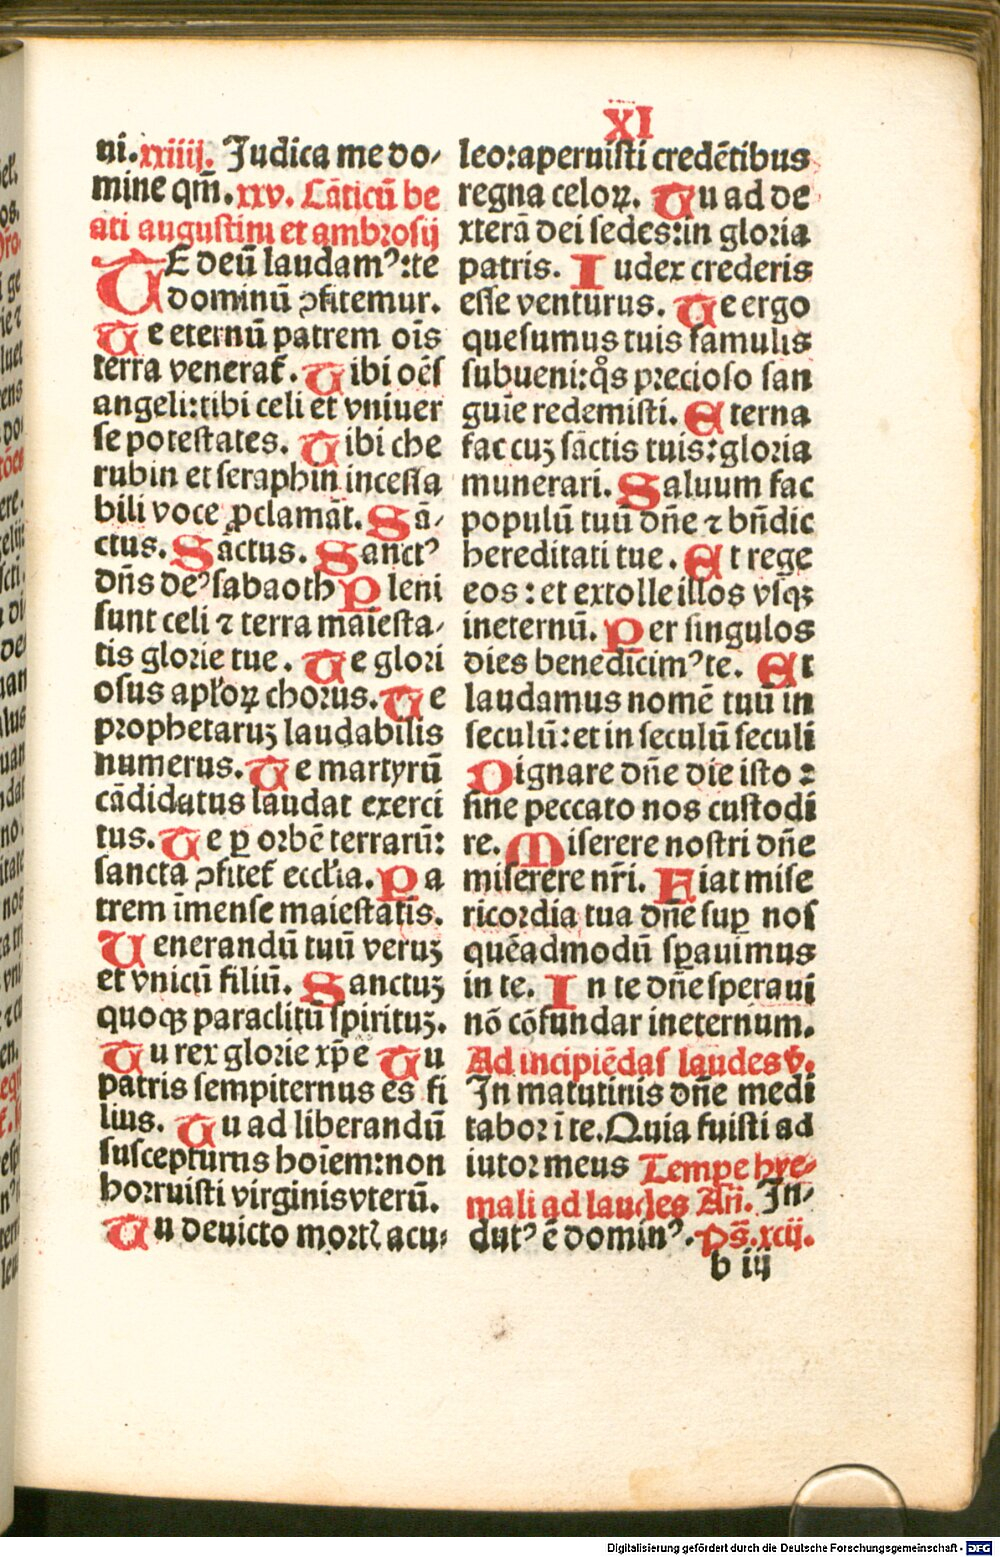 XI
ni. xxiiij. Judica me do⸗
mine qm̄. xxv. Cāticū be
ati augustini et ambrosij
TE deū laudamꝰ: te
dominū ꝯfitemur.
Te eternū patrem oīs
terra venerat̄. Tibi oēs
angeli: tibi celi et vniuer
se potestates. Tibi che
rubin et seraphin incessa
bili voce ꝓclamāt. Sā⸗
ctus. Sāctus. Sanctꝰ
dn̄s deꝰ sabaoth Pleni
sunt celi ⁊ terra maiesta⸗
tis glorie tue. Te glori
osus apl'oꝝ chorus. Te
prophetaruꝫ laudabilis
numerus. Te martyrū
cādidatus laudat exerci
tus. Te ꝑ orbē terrarū:
sancta ꝯfitet̄ eccl'ia. Pa
trem īmense maiestatis.
Uenerandū tuū veruꝫ
et vnicū filiū. Sanctuꝫ
quoqꝫ paraclitū spirituꝫ.
Tu rex glorie xp̄e Tu
patris sempiternus es fi
lius. Tu ad liberandū
suscepturus hoīem: non
horruisti virginis vterū.
Tu deuicto mortꝭ acu⸗
leo: aperuisti credētibus
regna celoꝝ. Tu ad de
xterā dei sedes: in gloria
patris. Iudex crederis
esse venturus. Te ergo
quesumus tuis famulis
subueni: qͦs precioso san
guīe redemisti. Eterna
fac cuꝫ sāctis tuis: gloria
munerari. Saluum fac
populū tuū dn̄e ⁊ bn̄dic
hereditati tue. Et rege
eos: et extolle illos vsqꝫ
ineternū. Per singulos
dies benedicimꝰ te. Et
laudamus nomē tuū in
seculū: et in seculū seculi
Dignare dn̄e die isto :
sine peccato nos custodi
re. Miserere nostri dn̄e
miserere nr̄i. Fiat mise
ricordia tua dn̄e suꝑ nos
quēadmodū sꝑauimus
in te. In te dn̄e speraui
nō cōfundar ineternum.
Ad incipiēdas laudes v̄.
In matutinis dn̄e medi
tabor ī te. Quia fuisti ad
iutor meus Tempe hye⸗
mali ad laudes An̄. In⸗
dutꝰ ē dominꝰ. Ps̄. xcij.
b iij
Digitalisierung gefördert durch die Deutsche Forschungsgemeinschaft - DFG